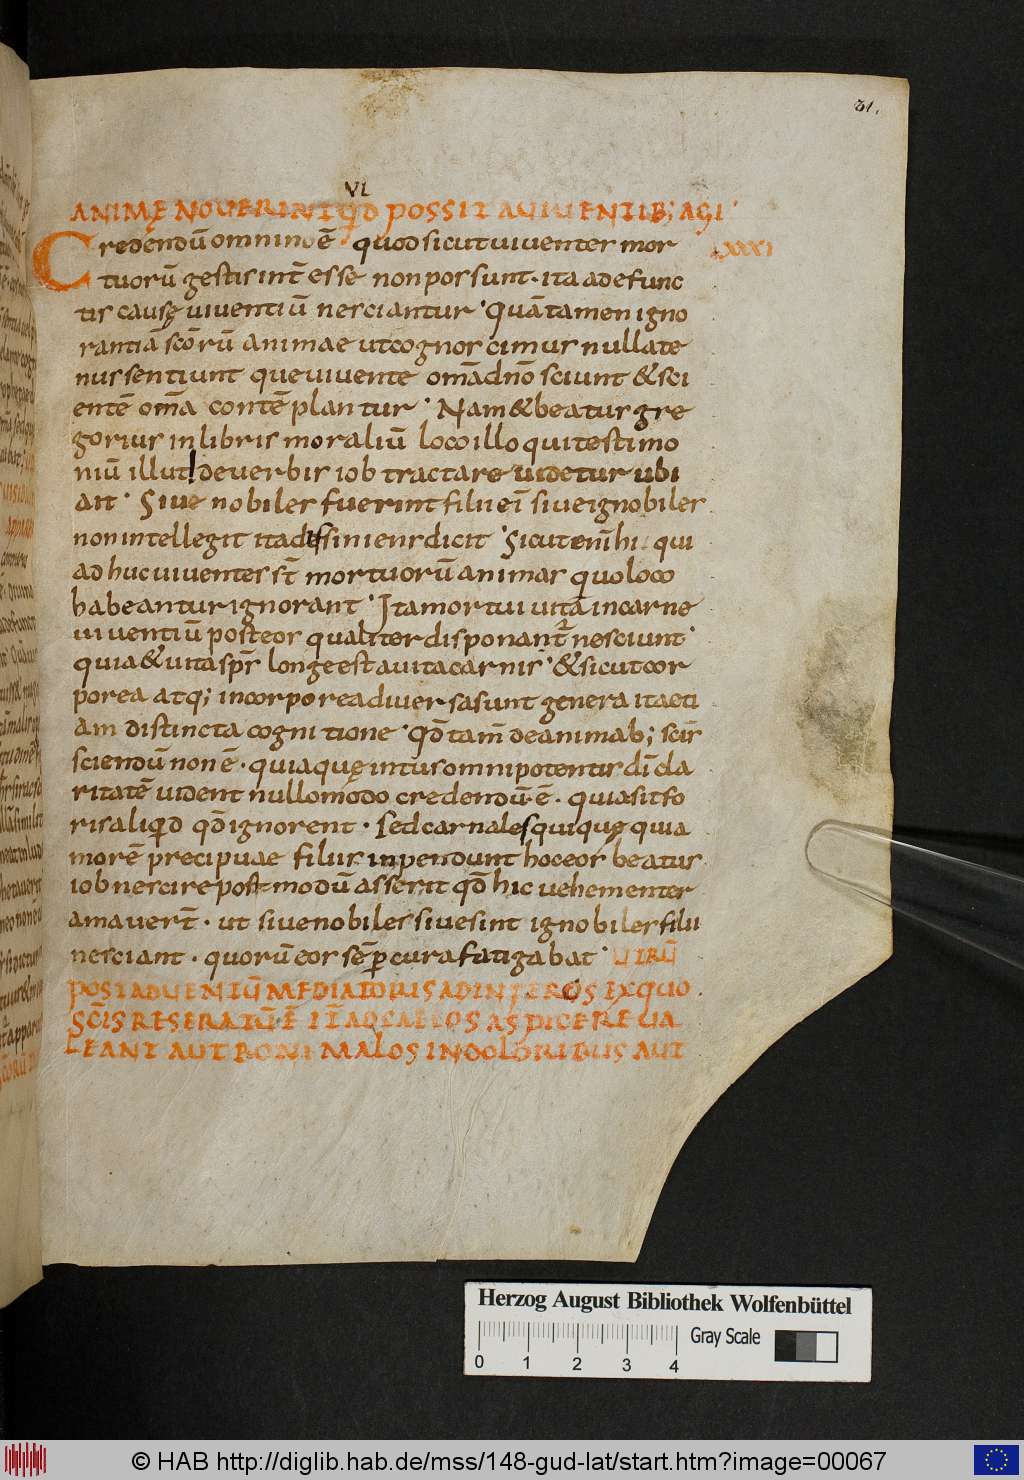 31.
VI
ANIMĘ NOVERINT QD POSSIT A VIVENTIB; AGI·
Credendū omnino ē quod sicut viventes mor LXXXI
tuorū gestis int̄ esse non possunt· ita a defunc
tis causę viventiū nesciantur· Quātamen igno
rantiā sc̄orū animae ut cognoscimus nullate
nus sentiunt que vivente om̄a dn̄o sciunt & sci
entē om̄a contēplantur· Nam & beatus gre
gorius in libris moraliū loco illo qui testimo
niū illut! de verbis iob tractare videtur ubi
ait· Sive nobiles fuerint filii ei sive ignobiles
non intellegit ita desiniens dicit· Sicut eni hi qui
ad huc viventes st̄ mortuorū animas quo loco
habeantur ignorant· Ita mortui vitā in carne
viventiū post eos qualiter disponant̄ nesciunt·
quia & vita spr̄ longe est a vita carnis· & sicut cor
porea atq; incorporea diversa sunt genera ita eti
am distincta cognitione· Qd̄ tam̄ de animab; sc̄is
sciendū non ē· quia quę intus omnipotentis di cla
ritatē vident nullomodo credendū ē· quia sit fo
ris aliqid qd̄ ignorent· Sed carnales quique quia
morē precipuae filiis inpendunt hoc eos beatus
iob nescire post modū asserit qd̄ hic vehementer
amavert̄· ut sive nobiles sive sint ignobiles filii
nesciant· quorū eos sēp cura fatigabat· UIRŪ
POST ADVENTŪ MEDIATORIS AD INFEROS EX QUO
SC̄IS RESERATŪ Ē ITER AD CAELOS ASPICERE VA
LEANT AUT BONI MALOS IN DOLORIBUS AUT
Herzog August Bibliothek Wolfenbüttel
Gray Scale
0 1 2 3 4
© HAB http://diglib.hab.de/mss/148-gud-lat/start.htm?image=00067